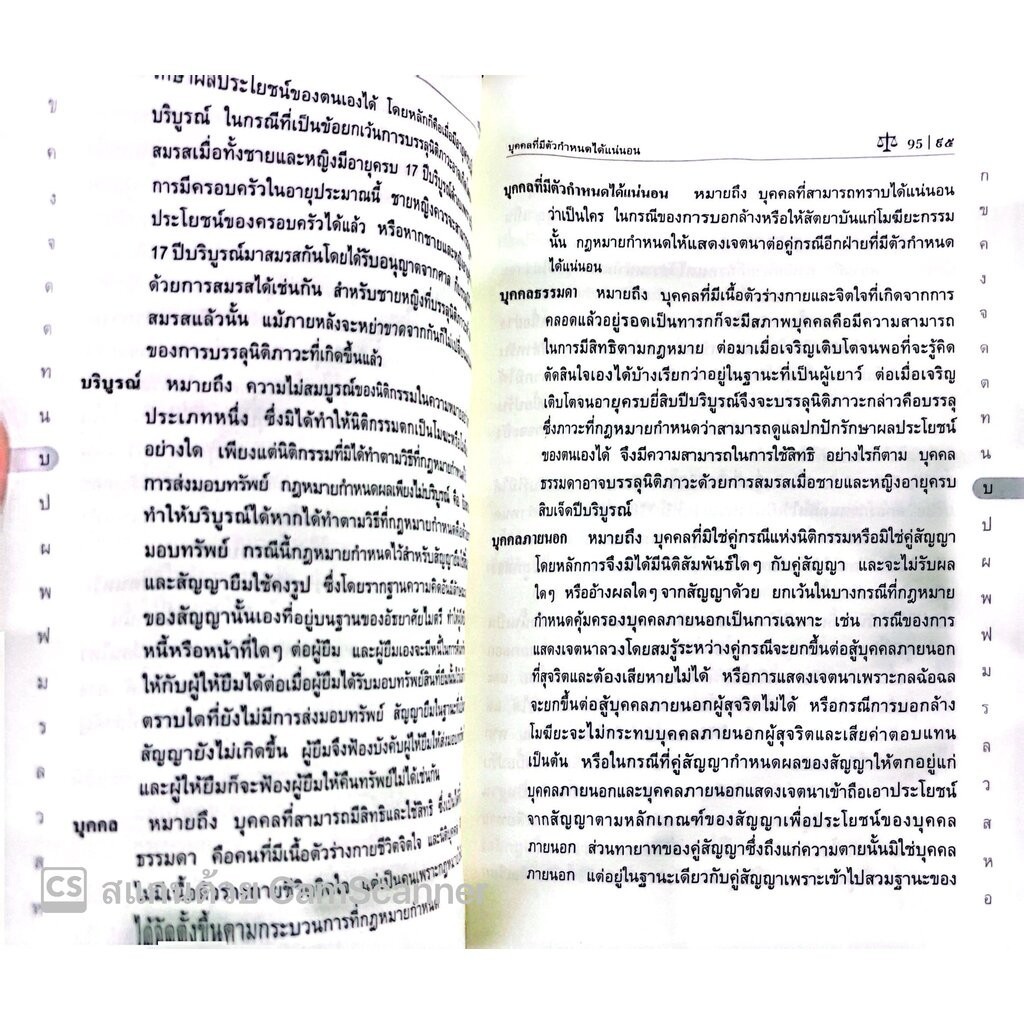 ผลประโยชน์ของตนเองได้ โดยหลักก็คือเมื่อมีอายุ
บริบูรณ์ ในกรณีที่เป็นข้อยกเว้นการบรรลุนิติภาวะ
สมรสเมื่อทั้งชายและหญิงมีอายุครบ 17 ปีบริบูรณ์
การมีครอบครัวในอายุประมาณนี้ ชายหญิงควรจะ
ประโยชน์ของครอบครัวได้แล้ว หรือหากชายและหญิง
17 ปีบริบูรณ์มาสมรสกันโดยได้รับอนุญาตจากศาล
ด้วยการสมรสได้เช่นกัน สำหรับชายหญิงที่บรรลุนิติภาวะ
สมรสแล้วนั้น แม้ภายหลังจะหย่าขาดจากกันก็ไม่
ของการบรรลุนิติภาวะที่เกิดขึ้นแล้ว
บริบูรณ์ หมายถึง ความไม่สมบูรณ์ของนิติกรรมในความหมาย
ประเภทหนึ่ง ซึ่งมิได้ทำให้นิติกรรมตกเป็นโมฆะหรือ
อย่างใด เพียงแต่นิติกรรมที่มิได้ทำตามวิธีที่กฎหมายกำหนด
การส่งมอบทรัพย์ กฎหมายกำหนดผลเพียงไม่บริบูรณ์ คือ
ทำให้บริบูรณ์ได้หากได้ทำตามวิธีที่กฎหมายกำหนดคือ
มอบทรัพย์ กรณีนี้กฎหมายกำหนดไว้สำหรับสัญญายืม
และสัญญายืมใช้คงรูป ซึ่งโดยรากฐานความคิดอันมี
ของสัญญานั้นเองที่อยู่บนฐานของอัธยาศัยไมตรี ทำให้
หนี้หรือหน้าที่ใดๆ ต่อผู้ยืม และผู้ยืมเองจะมีหนี้ในการ
ให้กับผู้ให้ยืมได้ต่อเมื่อผู้ยืมได้รับมอบทรัพย์สินที่ยืม
ตราบใดที่ยังไม่มีการส่งมอบทรัพย์ สัญญายืมในฐานะ
สัญญายังไม่เกิดขึ้น ผู้ยืมจึงฟ้องบังคับผู้ให้ยืมให้ส่งมอบ
และผู้ให้ยืมก็จะฟ้องผู้ยืมให้คืนทรัพย์ไม่ได้เช่นกัน
บุคคล หมายถึง บุคคลที่สามารถมีสิทธิและใช้สิทธิ
ธรรมดา คือคนที่มีเนื้อตัวร่างกายชีวิตจิตใจ และนิติบุคคล
ไม่มีเนื้อตัวร่างกายชีวิตจิตใจ แต่เป็นบุคคลเพราะกฎหมาย
ได้จัดตั้งขึ้นตามกระบวนการที่กฎหมายกำหนด
CS สแกนด้วย CamScanner
ข
ค
ง
จ
ด
ต
ท
น
บ
ป
ผ
พ
ฟ
ม
ร
ล
ว
ส
ห
บุคคลที่มีตัวกำหนดได้แน่นอน 95 | ๙๕
บุคคลที่มีตัวกำหนดได้แน่นอน หมายถึง บุคคลที่สามารถทราบได้แน่นอน
ว่าเป็นใคร ในกรณีของการบอกล้างหรือให้สัตยาบันแก่โมฆียะกรรม
นั้น กฎหมายกำหนดให้แสดงเจตนาต่อคู่กรณีอีกฝ่ายที่มีตัวกำหนด
ได้แน่นอน
บุคคลธรรมดา หมายถึง บุคคลที่มีเนื้อตัวร่างกายและจิตใจที่เกิดจากการ
คลอดแล้วอยู่รอดเป็นทารกก็จะมีสภาพบุคคลคือมีความสามารถ
ในการมีสิทธิตามกฎหมาย ต่อมาเมื่อเจริญเติบโตจนพอที่จะรู้คิด
ตัดสินใจเองได้บ้างเรียกว่าอยู่ในฐานะที่เป็นผู้เยาว์ ต่อเมื่อเจริญ
เติบโตจนอายุครบยี่สิบปีบริบูรณ์จึงจะบรรลุนิติภาวะกล่าวคือบรรลุ
ซึ่งภาวะที่กฎหมายกำหนดว่าสามารถดูแลปกปักรักษาผลประโยชน์
ของตนเองได้ จึงมีความสามารถในการใช้สิทธิ อย่างไรก็ตาม บุคคล
ธรรมดาอาจบรรลุนิติภาวะด้วยการสมรสเมื่อชายและหญิงอายุครบ
สิบเจ็ดปีบริบูรณ์
บุคคลภายนอก หมายถึง บุคคลที่มิใช่คู่กรณีแห่งนิติกรรมหรือมิใช่คู่สัญญา
โดยหลักการจึงมิได้มีนิติสัมพันธ์ใดๆ กับคู่สัญญา และจะไม่รับผล
ใดๆ หรืออ้างผลใดๆ จากสัญญาด้วย ยกเว้นในบางกรณีที่กฎหมาย
กำหนดคุ้มครองบุคคลภายนอกเป็นการเฉพาะ เช่น กรณีของการ
แสดงเจตนาลวงโดยสมรู้ระหว่างคู่กรณีจะยกขึ้นต่อสู้บุคคลภายนอก
ที่สุจริตและต้องเสียหายไม่ได้ หรือการแสดงเจตนาเพราะกลฉ้อฉล
จะยกขึ้นต่อสู้บุคคลภายนอกผู้สุจริตไม่ได้ หรือกรณีการบอกล้าง
โมฆียะจะไม่กระทบบุคคลภายนอกผู้สุจริตและเสียค่าตอบแทน
เป็นต้น หรือในกรณีที่คู่สัญญากำหนดผลของสัญญาให้ตกอยู่แก่
บุคคลภายนอกและบุคคลภายนอกแสดงเจตนาเข้าถือเอาประโยชน์
จากสัญญาตามหลักเกณฑ์ของสัญญาเพื่อประโยชน์ของบุคคล
ภายนอก ส่วนทายาทของคู่สัญญาซึ่งถึงแก่ความตายนั้นมิใช่บุคคล
ภายนอก แต่อยู่ในฐานะเดียวกับคู่สัญญาเพราะเข้าไปสวมฐานะของ
ก
ข
ค
ง
จ
ด
ต
ท
น
บ
ป
ผ
พ
ฟ
ม
ร
ล
ว
ส
ห
อ